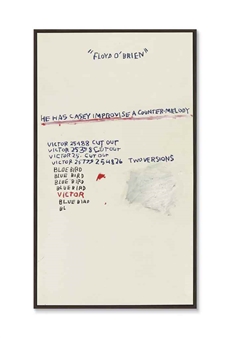 "FLOYD O'BRIEN"
HE HAS CASEY IMPROVISE A COUNTER-MELODY
VICTOR 25488 CUT OUT
VICTOR CUT OUT
VICTOR 25- CUT OUT
VICTOR TWO VERSIONS
BLUE BIRD
BLUE BIRD
BLUE BIRD
BLUE BIRD
VICTOR
BLUE BIRD
BL